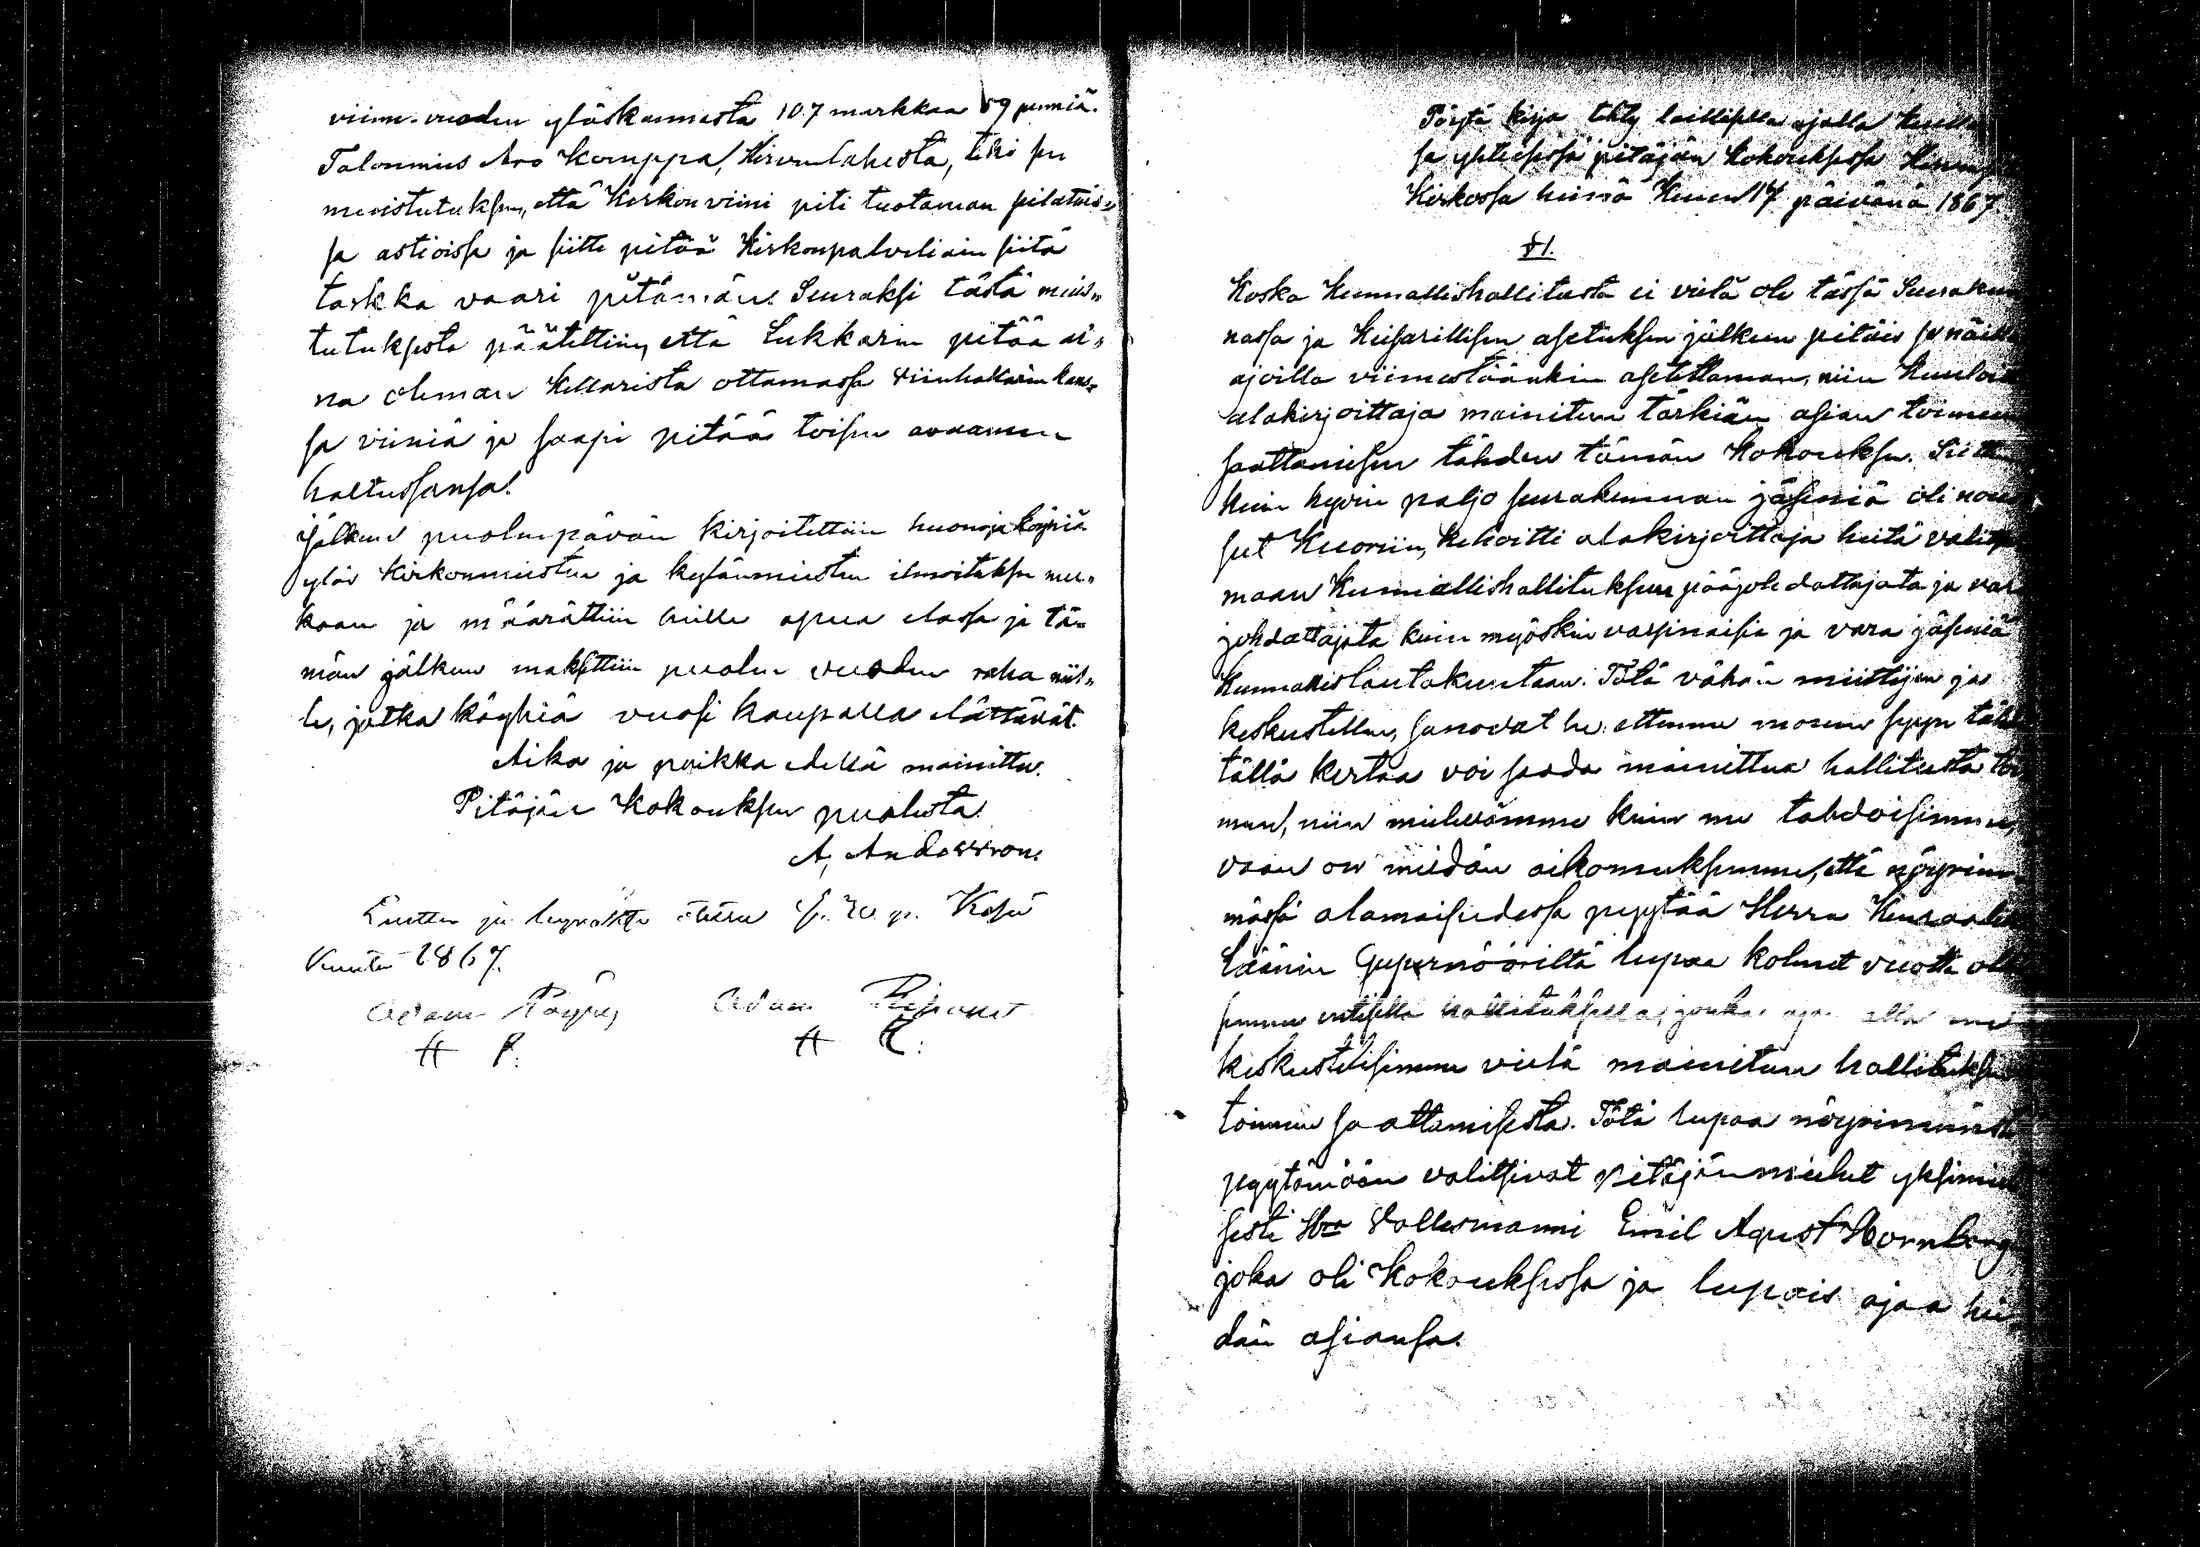 viime-vuoden ylöskannosta 107 markkaa 59 penniä.
Talonmies Aro Komppa, Hirvenlahesta, teki sen
muistutuksen, että Kirkonviini piti tuotaman siletuis„
sa astioissa ja siitte pitää Kirkonpalvelian siitä
tarkka vaari pitämän. Seuraksi tästä muis„
tutuksesta päätettiin, että Lukkarin pitää ai„
na oleman Kellarista ottamassa viinkallarin kans„
sa viiniä ja saapi pitää toisen avaamen
haltussansa.
Jälkeen puolenpävän kirjoitettiin huonoja köyhiä
ylös Kirkonmiesten ja kylänmiesten ilmoituksen mu„
kaan ja määrättiin heille apua elossa ja tä„
män jälkeen maksettiin puolen vuoden raha niil„
le, jotka köyhiä vuosi kaupalla elättävät.
Aika ja paikka edellä mainittu.
Pitäjän Kokouksen puolesta:
A. Andersson.
Luettu ja hyväksi Kesä
Kuuta 1867.
Adam Pöyhö Adam
H P. H
Pöytä kirja tehty laillisella ajalla
sa yhteisessä pitäjän kokouksessa
Kirkossa heinä Kuun 17 päivänä 1867
§1.
Koska Kunnallishallitusta ei vielä ole tässä Seurakun
nassa ja Keisarillisen asetuksen jälkeen pitäis se näillä
ajoilla viimestäänkin asetettaman, niin Kuulo
alakirjoittaja mainitun tärkiän asian toimeen
saattamisen tähden tämän Kokouksen. Siitte
kuin hyvin paljo seurakunnan jäseniä oli
sut Kuoriin, kehoitti alakirjoittaja heitä valitse
maan Kunnallishallituksen pääjohdattajata ja vara
johdattajata kuin myöskin varsinaisia ja vara jäseniä
Kunnallislautakuntaan. Tätä vähän miettijen ja
keskustellen, sanovat he: ettemme monen syyn täh
tällä kertaa voi saada mainittua hallitusta toi
meen, niin mielevämme kuin me tahdoisimme,
vaan on meidän aikomuksemme, että nöyrim
mässä alamaisudessa pyytää Herra Kuvernö
Läänin Gupernööriltä lupaa kolmet vuotta olla
semme entisellä hallituksella, jonka ajan alla me
keskustelisimme vielä mainitun hallituksen
toimeen saattamisesta. Tätä lupaa nöyrimmästi
pyytämään valitsivat pitäjänmiehet yksimieli
sesti Hra Vallesmanni Emil Agust Hornborg
joka oli Kokouksessa ja lupais ajaa hei„
dän asiansa.